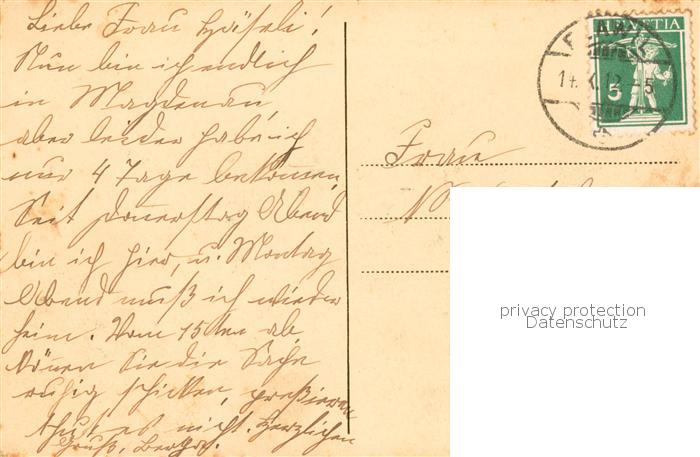 Liebe Frau Häfeli!
Nun bin ich endlich
in Magdenau
aber leider hab' ich
nur 4 Tage bekommen,
Seit Donnerstag Abend
bin ich hier, u. Montag
Abend muß ich wieder
heim. Vom 15ten ab
können Sie die Sache
ruhig schicken, pressieren
thut es nicht. Herzlichen
Gruß,
HELVETIA
5
Frau
privacy protection
Datenschutz